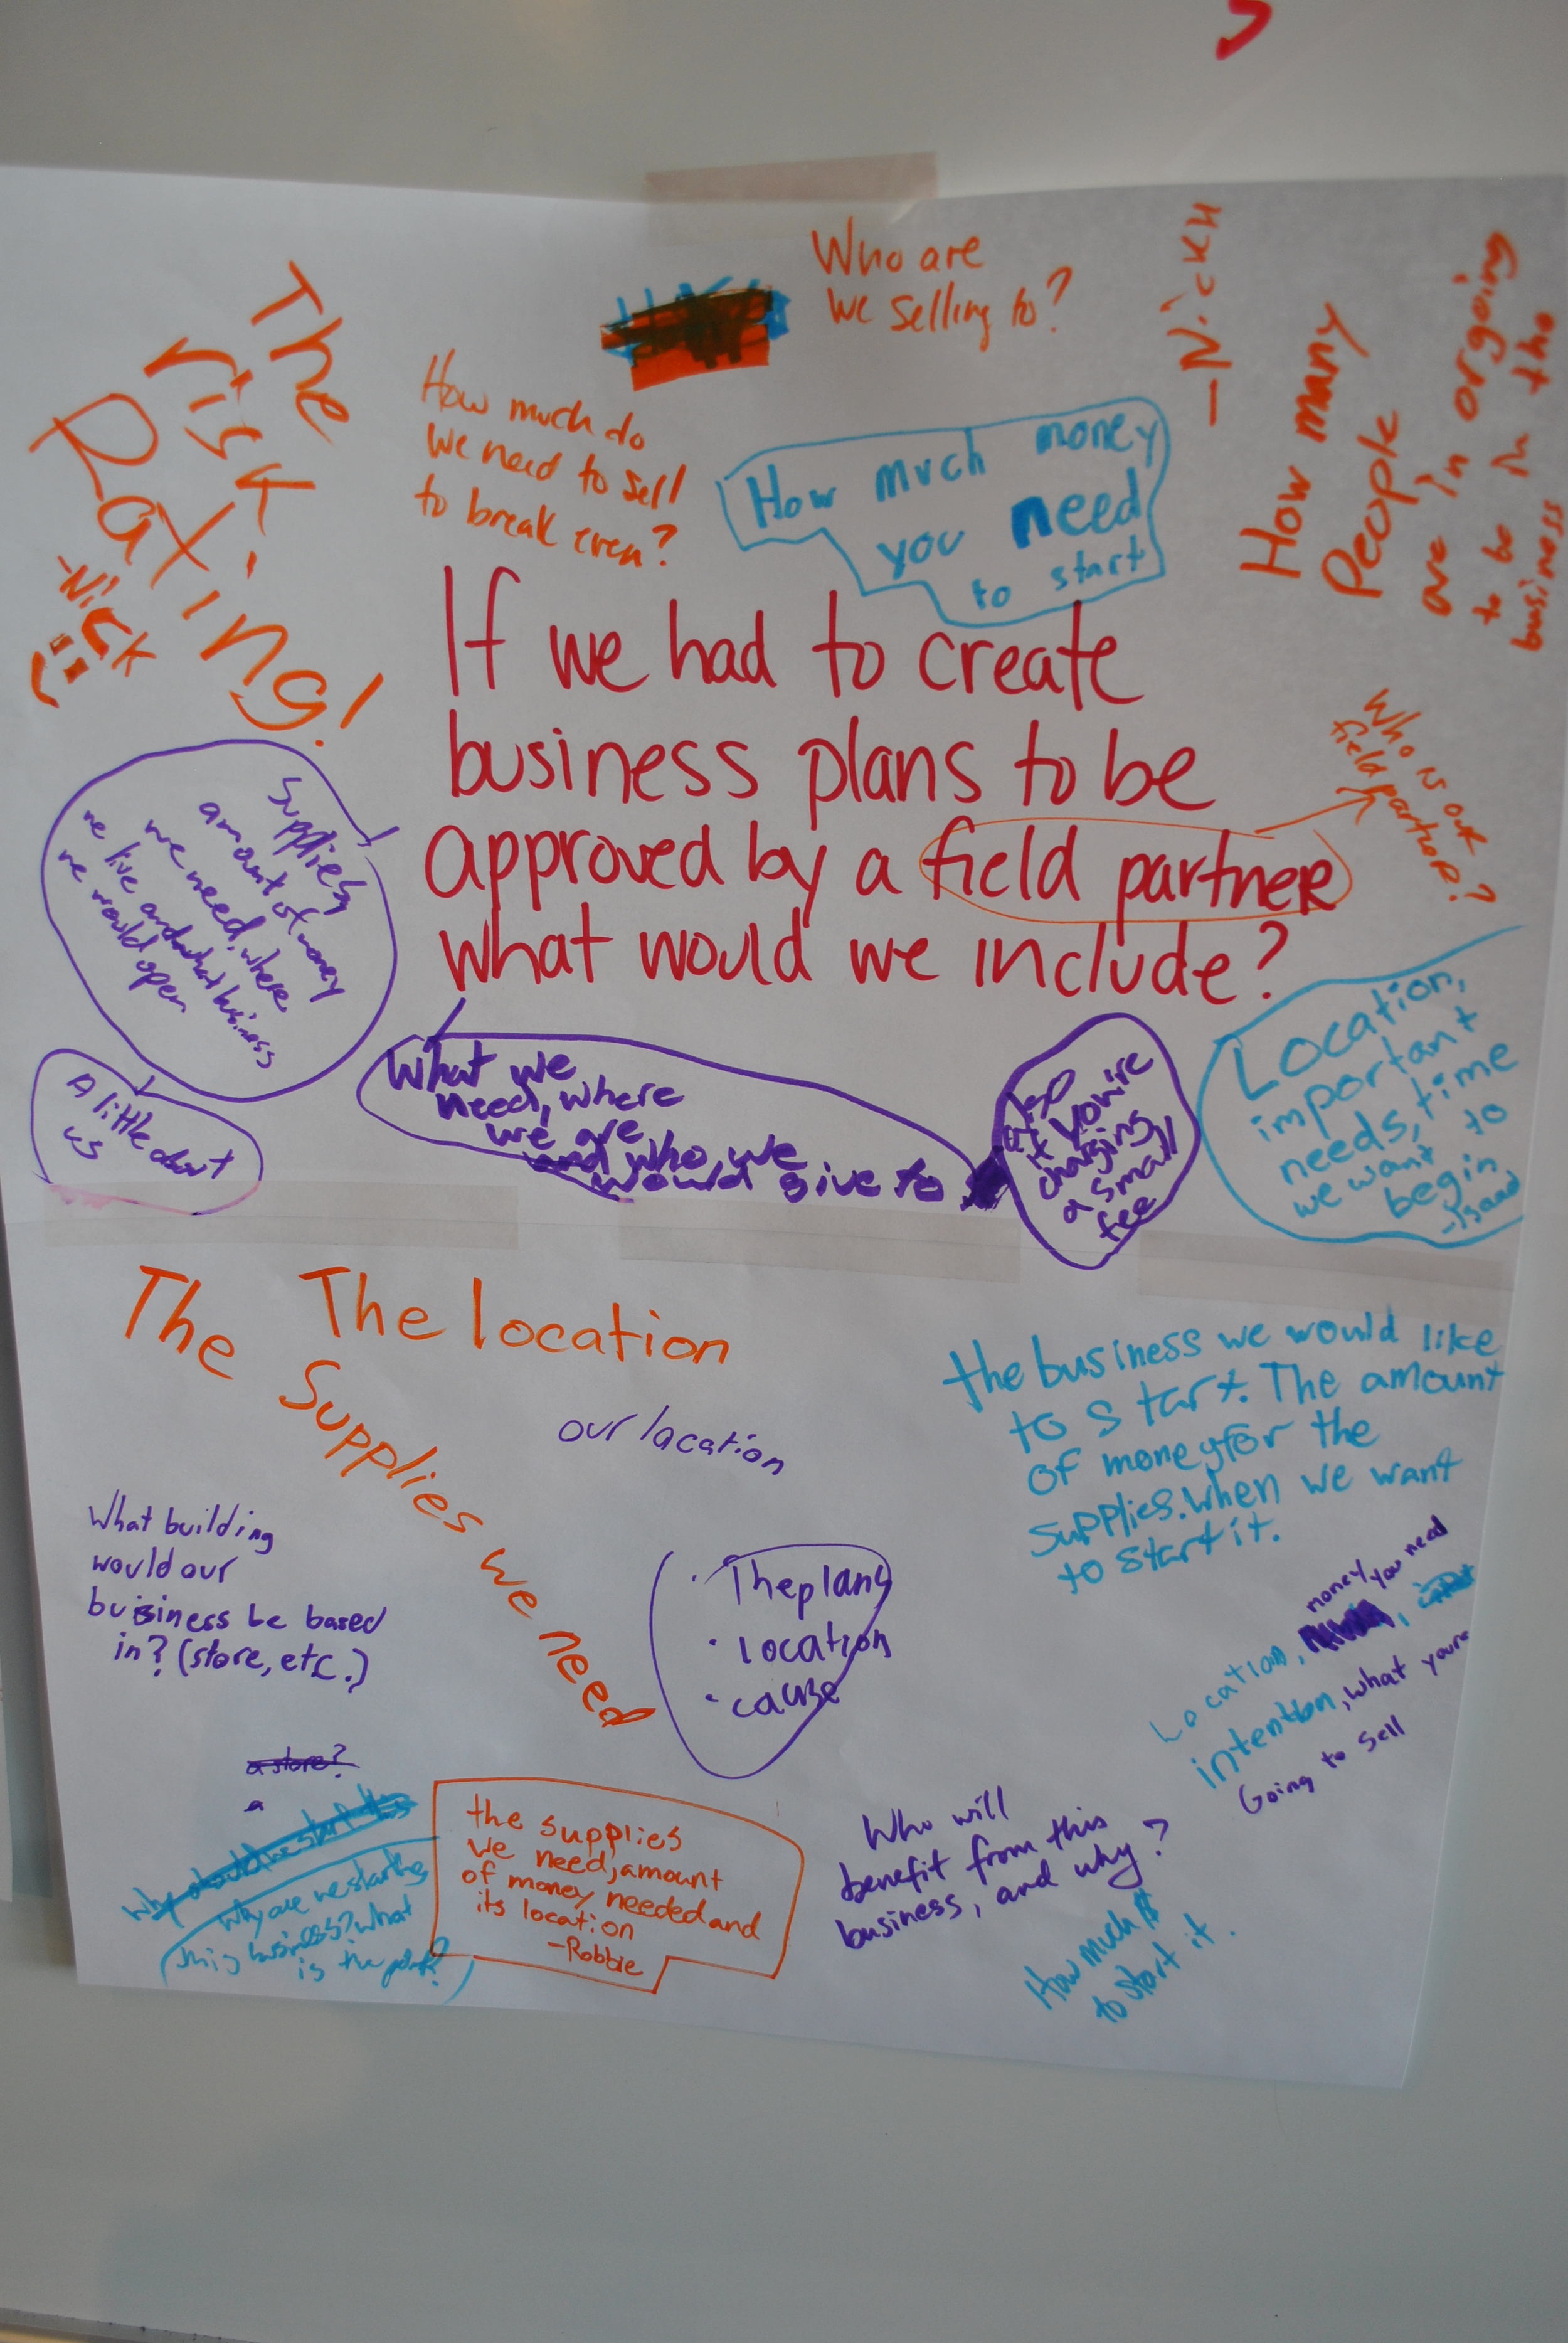 Who are
we selling to?
The
risk
Rating!
-Nick
How much do
we need to sell
to break even?
How much money
you need
to start
-Nick H
How many
People
are in orgoing
to be in the
business
If we had to create
business plans to be
approved by a field partner
what would we include?
Who is our
field partner?
Supplies,
amount of money
we need, where
we live and what business
we would open
A little about
us
What we
need, where
we are,
and who we
would give to
if you're
charging
a small
fee
Location,
important
needs, time
we want to
begin
The location
The Supplies we need
our location
the business we would like
to start. The amount
of money for the
supplies. when we want
to start it.
What building
would our
buisiness be based
in? (store, etc.)
· The plans
· location
· cause
money you need
Location,
intention, what youre
Going to sell
a store?
a
Why should we start this
Why are we starting
this business? what
is the point?
the supplies
we need, amount
of money needed and
its location
-Robbie
Who will
benefit from this
business, and why?
How much $
to start it.